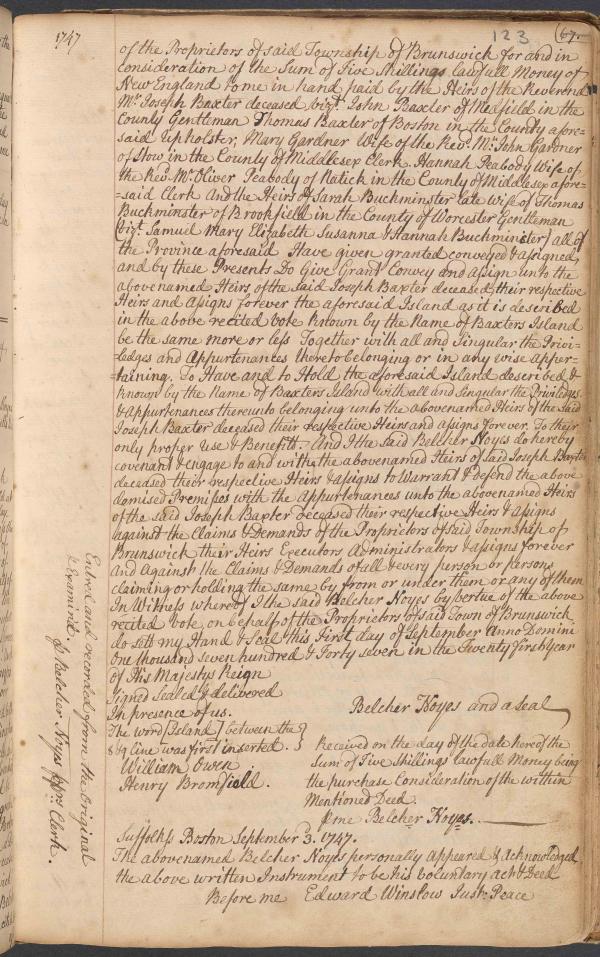 1747
123
(67.
of the Proprietors of said Township of Brunswick for and in
consideration of the Sum of Five Shillings lawfull Money of
New England to me in hand paid by the Heirs of the Reverend
Mr. Joseph Baxter deceased vizt. John Baxter of Medfield in the
County Gentleman Thomas Baxter of Boston in the County afore=
said Upholster, Mary Gardner Wife of the Revd. Mr. John Gardner
of Stow in the County of Middlesex Clerk Hannah Peabody Wife of
the Revd. Mr. Oliver Peabody of Natick in the County of Middlesex afore=
=said Clerk And the Heirs of Sarah Buckminster late Wife of Thomas
Buckminster of Brookfield in the County of Worcester Gentleman
(vizt. Samuel Mary Elizabeth Susanna & Hannah Buckminster) all of
the Province aforesaid Have given granted conveyed & assigned
and by these Presents Do Give Grant Convey and assign unto the
abovenamed Heirs of the said Joseph Baxter deceased, their respective
Heirs and assigns forever the aforesaid Island as it is described
in the above recited Vote Known by the Name of Baxters Island
be the same more or less Together with all and singular the Privi=
=ledges and Appurtenances thereto belonging or in any wise apper=
=taining. To Have and to Hold the aforesaid Island described &
Known by the Name of Baxters Island with all and singular the Priviledges
& appurtenances thereunto belonging unto the abovenamed Heirs of the said
Joseph Baxter deceased their respective Heirs and assigns forever. To their
only proper Use & Benefitt. And I the said Belcher Noyes do hereby
covenant & engage to and with the abovenamed Heirs of said Joseph Baxter
deceased their respective Heirs & assigns to Warrant & Defend the above
domised Premises with the appurtenances unto the abovenamed Heirs
of the said Joseph Baxter deceased their respective Heirs & assigns
against the Claims & Demands of the Proprietors of said Township of
Brunswick their Heirs Executors Administrators & assigns forever
And against the Claims & Demands of all & every person or persons
claiming or holding the same by from or under them or any of them
In Witness whereof I the said Belcher Noyes by vertue of the above
recited vote, on behalf of the Proprietors of said Town of Brunswick
do sett my Hand & Seal this First day of September Anno Domini
One thousand seven hundred & Forty seven in the Twenty first Year
of His Majestys Reign
Signed Sealed & delivered
In presence of us.
The word [Island] between the
8 & 9 Line was first inserted.
William Owen
Henry Bromfield.
Belcher Noyes and a Seal
Received on the day of the date hereof the
Sum of Five Shillings lawfull Money being
the purchase Consideration of the within
Mentioned Deed.
p me Belcher Noyes.
Suffolk ss Boston September 3. 1747.
The abovenamed Belcher Noyes personally Appeared & Acknowledged
the above written Instrument to be his Voluntary act & Deed
Before me Edward Winslow Just: Peace
Entred and recorded from the Original
& Examind.
p Belcher Noyes Proprs. Clerk.